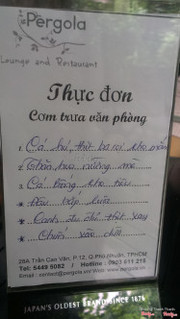 Pergola
Lounge and Restaurant
Thực đơn
Cơm trưa văn phòng
1. Cá hú, thịt ba rọi kho
2. Thăn heo nướng mè
3. Cá trứng kho tiêu
Đậu bắp luộc
Canh thịt xay
Chuối xào dừa
28A Trần Cao Vân, P.12, Q.Phú Nhuận, TPHCM
Tel: 5449 5062 / Hotline : 0923 911 215
Email: contact@pergola.vn Web: www.pergola.vn
JAPAN'S OLDEST BRAND SINCE 1876